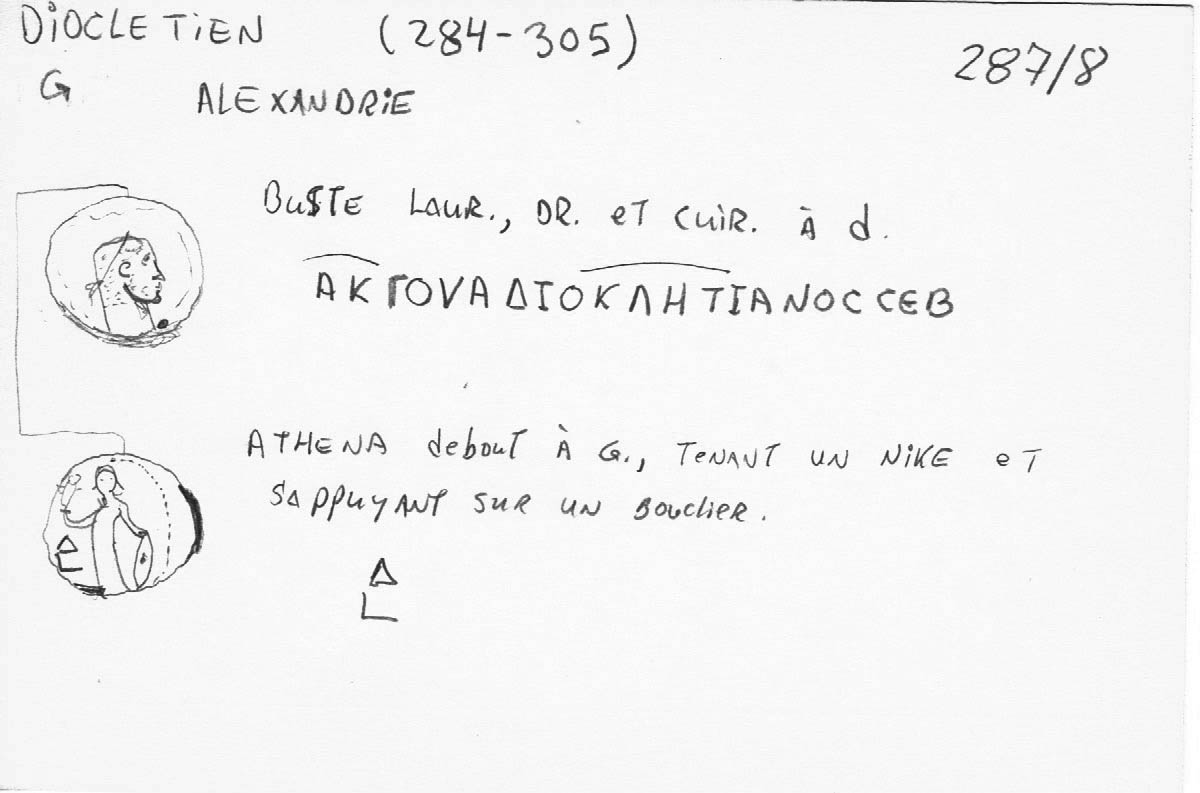 DiOCLETiEN (284-305)
287/8
G ALEXANDRiE
BUSTE LAUR., DR. eT CUiR. À d.
ΑΚΓΟVΑΔΙΟΚΛΗΤΙΑΝΟC CЄΒ
ATHENA debout À G., TENANT UN NiKE eT
SAPPUYANT SUR UN BOUCLIER.
Δ
L
Δ
L